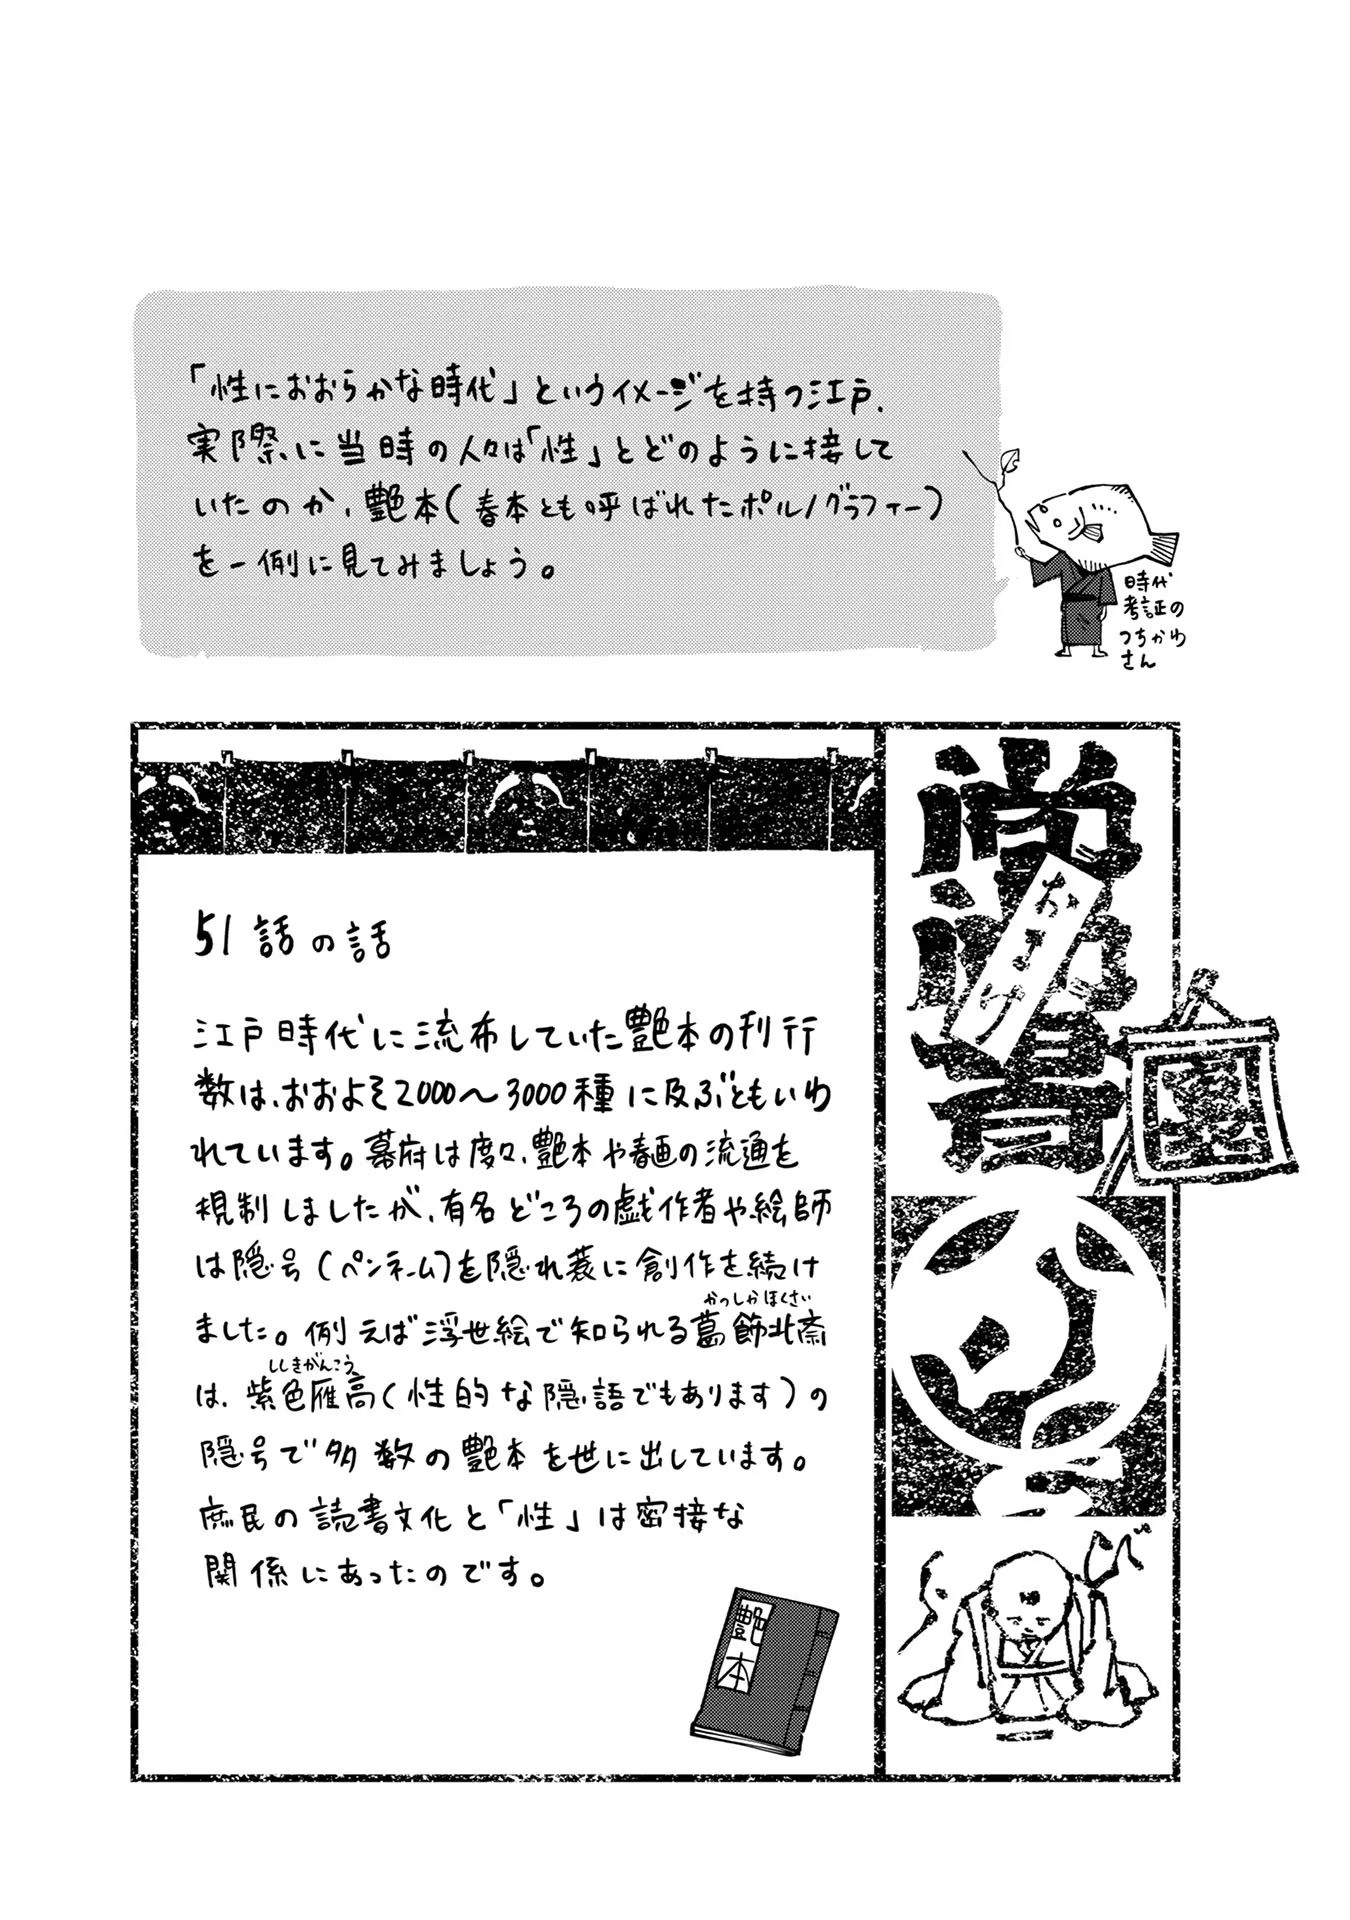 「性におおらかな時代」というイメージを持つ江戸、
実際に当時の人々は「性」とどのように接して
いたのか、艶本(春本とも呼ばれたポルノグラフィー)
を一例に見てみましょう。
時代
考証の
つちかわ
さん
おまけ
裏
51話の話
江戸時代に流布していた艶本の刊行
数は、おおよそ2000〜3000種に及ぶともいわ
れています。幕府は度々、艶本や春画の流通を
規制しましたが、有名どころの戯作者や絵師
は隠号(ペンネーム)を隠れ蓑に創作を続け
かっしかほくさい
ました。例えば浮世絵で知られる葛飾北斎
ししきがんこう
は、紫色雁高(性的な隠語でもあります)の
隠号で多数の艶本を世に出しています。
庶民の読書文化と「性」は密接な
関係にあったのです。
艶本